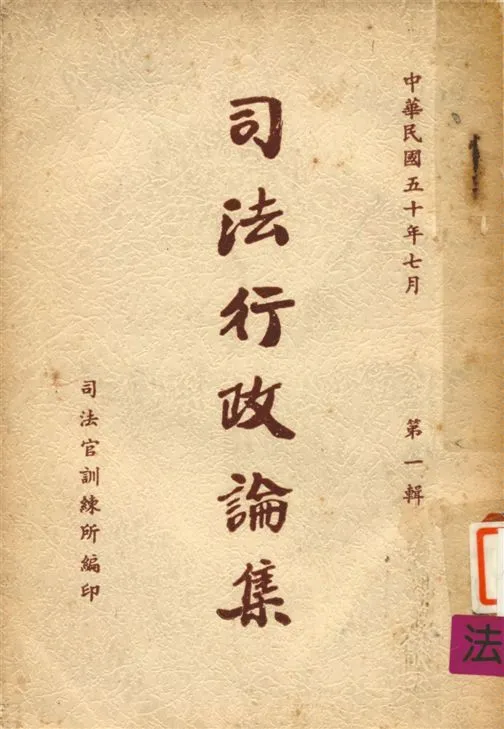 中華民國五十年七月 第一輯
司法行政論集
司法官訓練所編印
法